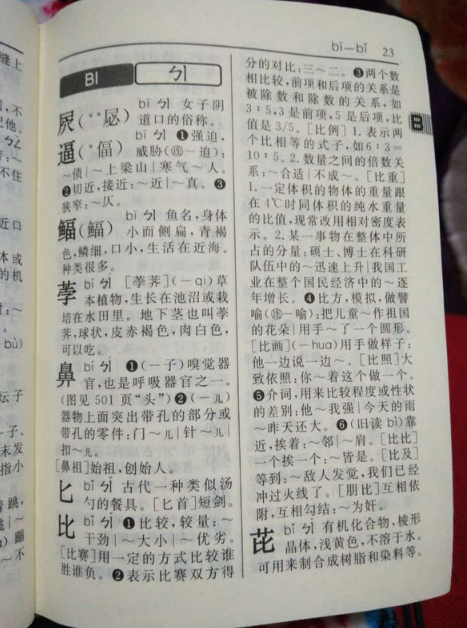 bī—bǐ 23
BI ㄅㄧ
屄(*屄) bī ㄅㄧ 女子阴
道口的俗称。
逼(*偪) bī ㄅㄧ ❶强迫,
威胁(㊣—迫):
～债|～上梁山|寒气～人。
❷切近,接近:～近|～真。❸
狭窄:～仄。
鲾(鰏) bī ㄅㄧ 鱼名,身体
小而侧扁,青褐
色,鳞细,口小,生活在近海。
种类很多。
荸 bí ㄅㄧˊ [荸荠](—qi)草
本植物,生长在池沼或栽
培在水田里。地下茎也叫荸
荠,球状,皮赤褐色,肉白色,
可以吃。
鼻 bí ㄅㄧˊ ❶(—子)嗅觉器
官,也是呼吸器官之一。
(图见 501 页“头”)❷(—儿)
器物上面突出带孔的部分或
带孔的零件:门～儿|针～儿|
扣～儿。
[鼻祖]始祖,创始人。
匕 bǐ ㄅㄧˇ 古代一种类似汤
勺的餐具。[匕首]短剑。
比 bǐ ㄅㄧˇ ❶比较,较量:～
干劲|～大小|～优劣。
[比赛]用一定的方式比较谁
胜谁负。❷表示比赛双方得
分的对比:三～二。❸两个数
相比较,前项和后项的关系是
被除数和除数的关系,如
3∶5,3是前项,5是后项,比
值是 3/5。[比例]1.表示两
个比相等的式子,如6∶3=
10∶5。2.数量之间的倍数关
系:～合适|不成～。[比重]
1.一定体积的物体的重量跟
在4℃时同体积的纯水重量
的比值,现常改用相对密度表
示。2.某一事物在整体中所
占的分量:硕士、博士在科研
队伍中的～迅速上升|我国工
业在整个国民经济中的～逐
年增长。❹比方,模拟,做譬
喻(㊣—喻):把儿童～作祖国
的花朵|用手～了一个圆形。
[比画](—hua)用手做样子:
他一边说一边～。[比照]大
致依照:你～着这个做一个。
❺介词,用来比较程度或性状
的差别:他～我强|今天的雨
～昨天还大。❻(旧读bì)靠
近,挨着:～邻|～肩。[比比]
一个挨一个:～皆是。[比及]
等到:～敌人发觉,我们已经
冲过火线了。[朋比]互相依
附,互相勾结:～为奸。
芘 bǐ ㄅㄧˇ 有机化合物,棱形
晶体,浅黄色,不溶于水。
可用来制合成树脂和染料等。
B